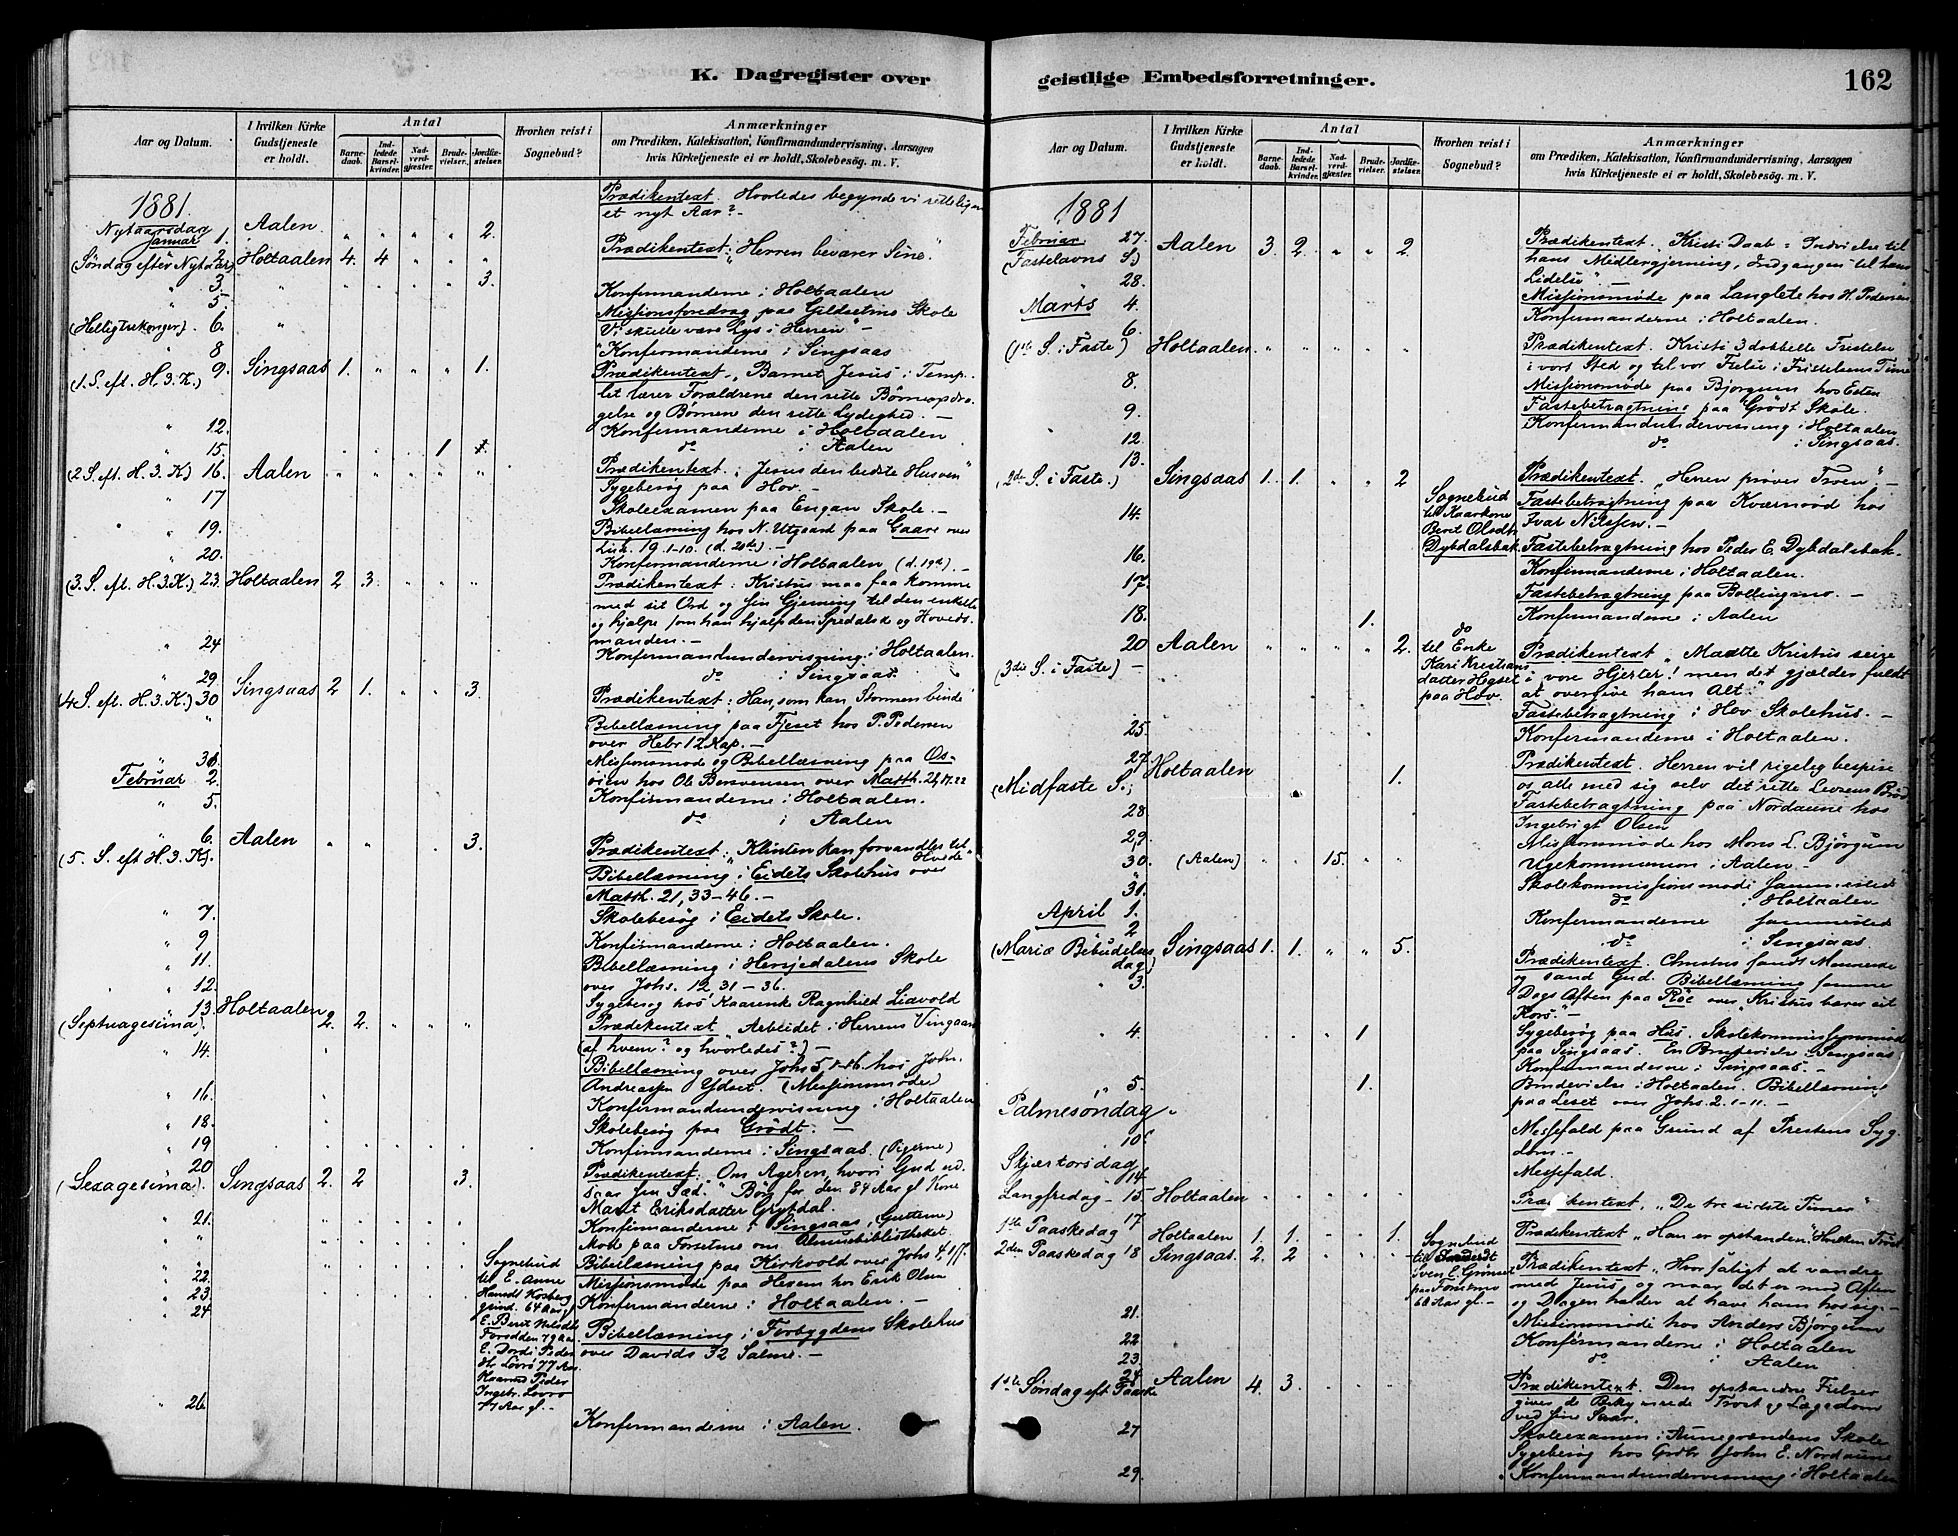 K. Dagregister over
geistlige Embedsforretninger.
162
Aar og Datum.
I hvilken Kirke Gudstjeneste er holdt.
Antal
Barnedaab.
Indledede Barselkvinder.
Nadverdgjæster.
Brudevielser.
Jordfæstelser.
Hvorhen reist i Sognebud?
Anmærkninger
om Prædiken, Katekisation, Konfirmandundervisning, Aarsagen
hvis Kirketjeneste ei er holdt, Skolebesög. m. V.
1881
Prædikentext. Hvorledes begynde vi retteligen
et nyt Aar?
Nytaarsdag
Januar 1. Aalen 2.
(Søndag efter Nytaar) 2. Holtaalen 4. 4 Prædikentext: "Herren bevarer Sine".
3. 3.
5. Konfirmanderne i Holtaalen
(Helligtrekonger) 6. Missionsforedrag paa Gildsetmo Skole
"Vi skulle være Lys i Herren" -
8 Konfirmanderne i Singsaas
(1. S. eft. H. 3. K.) 9. Singsaas 1. 1. Prædikentext. "Barnet Jesus i Templet
lærer Forældrene den rette Børneopdragelse
og Børnene den rette Lydighed. -
12. Konfirmanderne i Holtaalen
15. 1 do i Aalen
(2 S. eft. H. 3. K) 16. Aalen Prædikentext: "Jesus den bedste Husven"
17 Sygebesøg paa Hov. -
Skoleexamen paa Engan Skole. -
19. Bibellæsning hos N. Utgaard paa Gaare over
Luk. 19. 1-10. (d. 20de) -
20. Konfirmanderne i Holtaalen (d. 19de). -
(3. S. eft. H. 3. K.) 23. Holtaalen 2 3. Prædikentext: Kristus maa faa komme
med sit Ord og sin Gjerning til den enkelte
og hjælpe som han hjalp den Spedalske og Høvedsmanden. -
24 Konfirmandundervisning i Holtaalen.
29. do i Singsaas
(4 S. eft. H. 3. K.) 30 Singsaas 2 1. 3. Prædikentext: Han, som kan Stormen binde
Bibellæsning paa Fjeset hos P. Pedersen
over Hebr 12 Kap. -
31. Missionsmøde og Bibellæsning paa
Februar 2. hos Ole Bersvensen over Matth.
5. Konfirmanderne i Holtaalen.
do i Aalen
(5. S. eft H. 3. K). 6. Aalen 3. Prædikentext: "Klinten kan forvandles til Hvede"
Bibellæsning i Eidets Skolehus over
Matth. 21, 33-46. -
7. Skolebesøg i Eidets Skole.
9 Konfirmanderne i Holtaalen.
11. Bibellæsning i Hersjedalens Skole
over Johs. 12 31-36.
12. Sygebesøg hos Kaarenke Ragnhild Liavold
(Septuagesima) 13. Holtaalen 2. 2. Prædikentext "Arbeidet i Herrens Vingaard
(af hvem? og hvorledes?) -
14. Bibellæsning over Johs 5 1-16 hos John
Andreasen Ydset. (Missionsmøde)
16. Konfirmandundervisning i Holtaalen
18. Skolebesøg paa Grødt. -
19 Konfirmanderne i Singsaas (Pigerne)
(Sexagesima) 20 Singsaas 2. 2 3. Prædikentext: Om Ageren, hvori Gud udsaar
sin Sæd. Bøn for den 84 Aar gl. Kone
Marit Eriksdatter Grytdal.
21. Konfirmanderne i Singsaas (Gutterne)
Møde paa Forsetmo om Almuebibliotheket.
Bibellæsning paa Kirkvold over Johs 4,
22. Sognebud til E. Anne
23. grind. 64 Aar gl Missionsmøde paa Hesem hos Erik Olsen
24 Konfirmanderne i Holtaalen. -
E. Berit Nilsdtr Forsdden 79 Aar
E. Dordi Peders
Lovrø 77 Aar
Kaarmd Peder
Ingebr. Lovrø
Aar gl. -
Bibellæsning i Forbygdens Skolehus
over Davids 32 Salme. -
26 Konfirmanderne i Aalen.
Aar og Datum.
I hvilken Kirke Gudstjeneste er holdt.
Antal
Barnedaab.
Indledede Barselkvinder.
Nadverdgjæster.
Brudevielser.
Jordfæstelser.
Hvorhen reist i Sognebud?
Anmærkninger
om Prædiken, Katekisation, Konfirmandundervisning, Aarsagen
hvis Kirketjeneste ei er holdt, Skolebesög. m. V.
1881
Februar 27. Aalen 3. 2. 2. Prædikentext. Kristi Daab = Indvielse til
(Fastelavns S.) hans Midlergjerning, Indgangen til hans
28. Lidelse".
Marts 4. Missionsmøde paa Langlete hos H. Pedersen
6. Konfirmanderne i Holtaalen.
(1ste S. i Faste) Holtaalen Prædikentext. Kristi 3 dobbelte Fristelse
i vort Sted og til vor Frelse i Fristelsens Time
8. Missionsmøde paa Bjørgum hos Esten
9. Fastebetragtning paa Grødt Skole.
12. Konfirmandundervisning i Holtaalen
13. do i Singsaas.
(2den S. i Faste.) Singsaas 1. 1. 2 Prædikentext. "Herren prøver Troen". -
Sognebud til Kaarkone Berit Olsdtr Dybdalsbak
14. Fastebetragtning paa Kværnrød hos
Ivar Nilssen. -
16. Fastebetragtning hos Peder E. Dybdalsbak.
17. Konfirmanderne i Holtaalen.
Fastebetragtning paa Bollingmo. -
18. 1. Konfirmanderne i Aalen
20 Aalen 2. do til Enke Kari Kristiansdatter Hegset paa Hov
(3die S. i Faste) - Prædikentext. "Maatte Kristus seire
i vore Hjerter! men det gjælder fuldt
at overgive ham Alt."
Fastebetragtning i Hov Skolehus. -
25. Konfirmanderne i Holtaalen.
27. Holtaalen 1. Prædikentext. Herren vil rigelig bespise
(Midfaste S.) os alle med sig selv det rette Livsens Brød
28 Fastebetragtning paa Nordaune hos
Ingebrigt Olsen
29. Missionsmøde hos Mons L. Bjørgum
30. (Aalen) 15. Ugekommunion i Aalen -
31. Skolekommissionsmøde sammesteds
April 1. do i Holtaalen
2 Konfirmanderne sammesteds
do i Singsaas.
(Mariæ Bebudelses dag) 3. Singsaas 1. 1. 5. Prædikentext. Christus sandt Menneske
og sand Gud. Bibellæsning samme
Dags Aften paa Röe over "Kristus bærer sit
Kors". -
4. 1 Sygebesøg paa Hus. Skolekommissionsmøde
paa Singsaas. En Brudevielse i Singsaas
Konfirmanderne i Singsaas. -
5. 1. Brudevielse i Holtaalen. Bibellæsning
paa Leset over Johs. 2. 1-11. -
Palmesøndag 10 Messefald paa Grund af Prestens Sygdom. -
Skjærtorsdag 14 Messefald.
Langfredag - 15. Holtaalen Prædikentext, "De tre sidste Timer"
1ste Paaskedag 17 Holtaalen 1. 1. 1. Prædikentext "Han er opstanden".
2den Paaskedag 18 Singsaas 2. 2 Sognebud til
Sven E. Grønset paa Forsetmo 68 Aar gl. -
Prædikentext "Hvor saligt at vandre
med Jesus og naar det er mod Aften
og Dagen hælder at have ham hos sig. -
21. Missionsmøde hos Anders Bjørgum
22 Konfirmanderne i Holtaalen
23. do i Aalen
1ste Søndag eft Paaske 24 Aalen 4. 3. Prædikentext. Den opstandne Frelser
giver de Bekymrede Trøst og Lægedom
ved sine Saar.
27 Skoleexamen i Aunegrændens Skole
Sygebesøg hos Grdbr John E. Nordaune
29. Konfirmandundervisning i Holtaalen